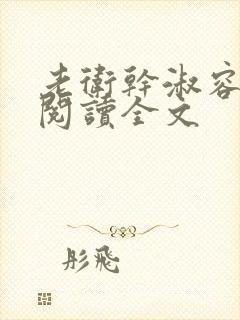 老衛幹淑容
閱讀全文
彤飛